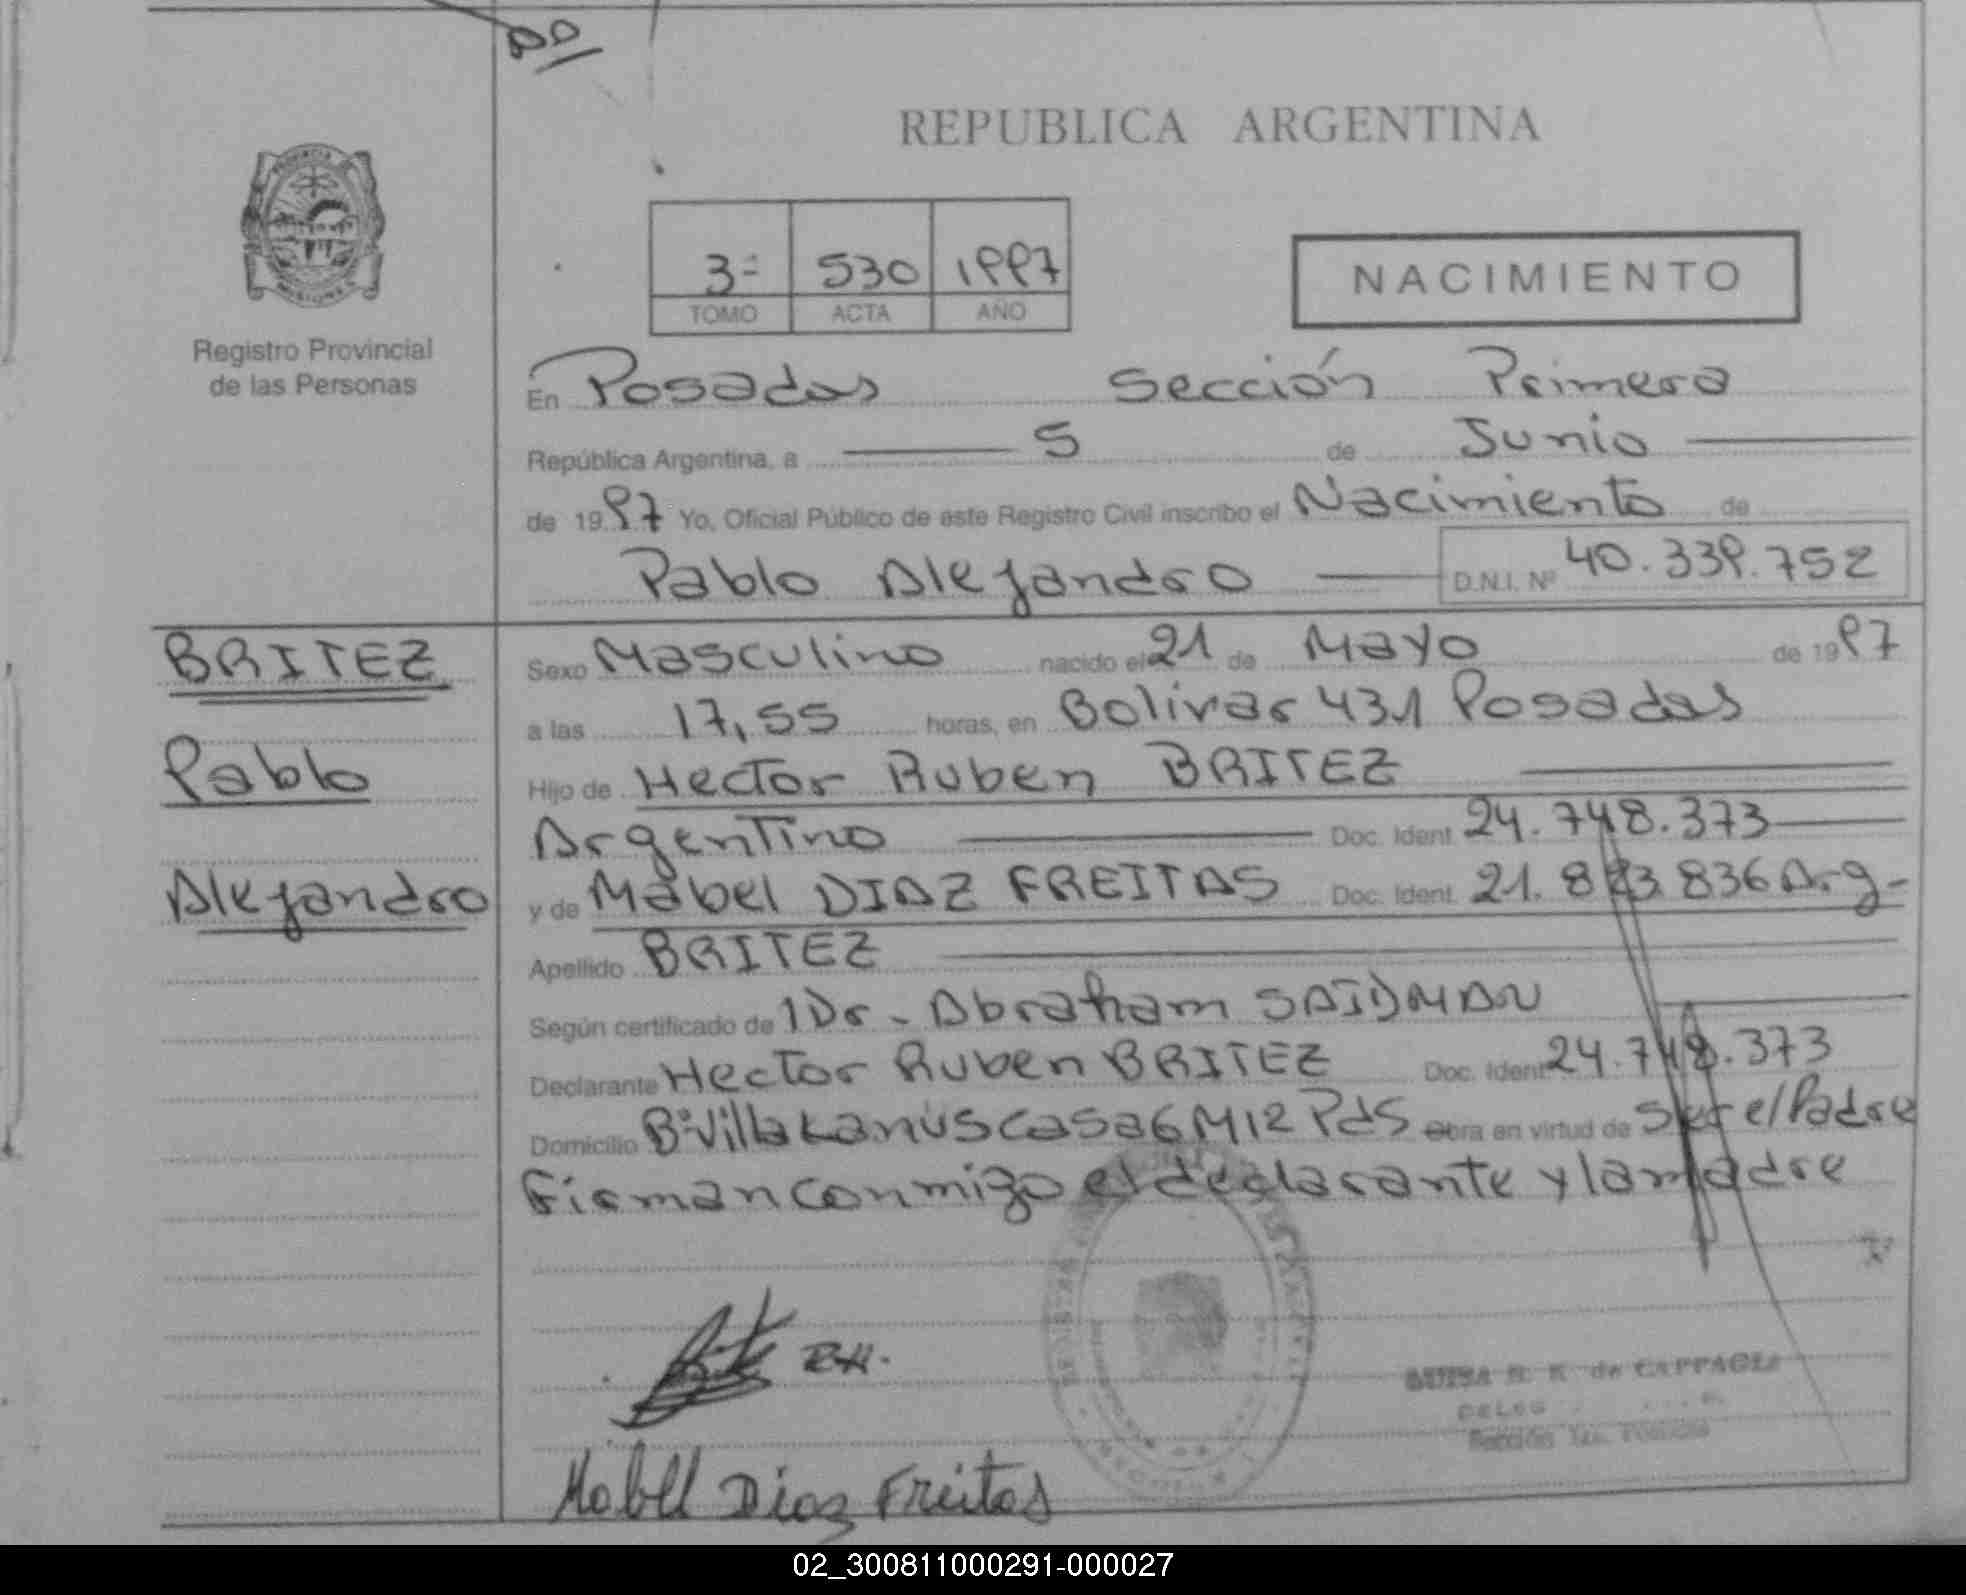 REPUBLICA ARGENTINA
PROVINCIA
MISIONES
Registro Provincial
de las Personas
3ª 530 1997
TOMO ACTA AÑO
NACIMIENTO
En Posadas Sección Primera
República Argentina, a 5 de Junio
de 1997 Yo, Oficial Público de este Registro Civil inscribo el Nacimiento de
Pablo Alejandro D.N.I. Nº 40.339.752
BRITEZ
Pablo
Alejandro
Sexo Masculino nacido el 21 de Mayo de 1997
a las 17,55 horas, en Bolivar 431 Posadas
Hijo de Hector Ruben BRITEZ
Argentino Doc. Ident. 24.748.373
y de Mabel DIAZ FREITAS Doc. Ident. 21.823.836 Arg-
Apellido BRITEZ
Según certificado de l Dr- Abraham SAIDMAN
Declarante Hector Ruben BRITEZ Doc. Ident 24.748.373
Domicilio Bº Villa Lanús Casa 6 M12 Pds Obra en virtud de Ser el Padre
Firman conmigo el declarante y la madre
B.H.
de CAPPAGLI
Sección 1ra. Posadas
Mabel Diaz Freitas
02_300811000291-000027